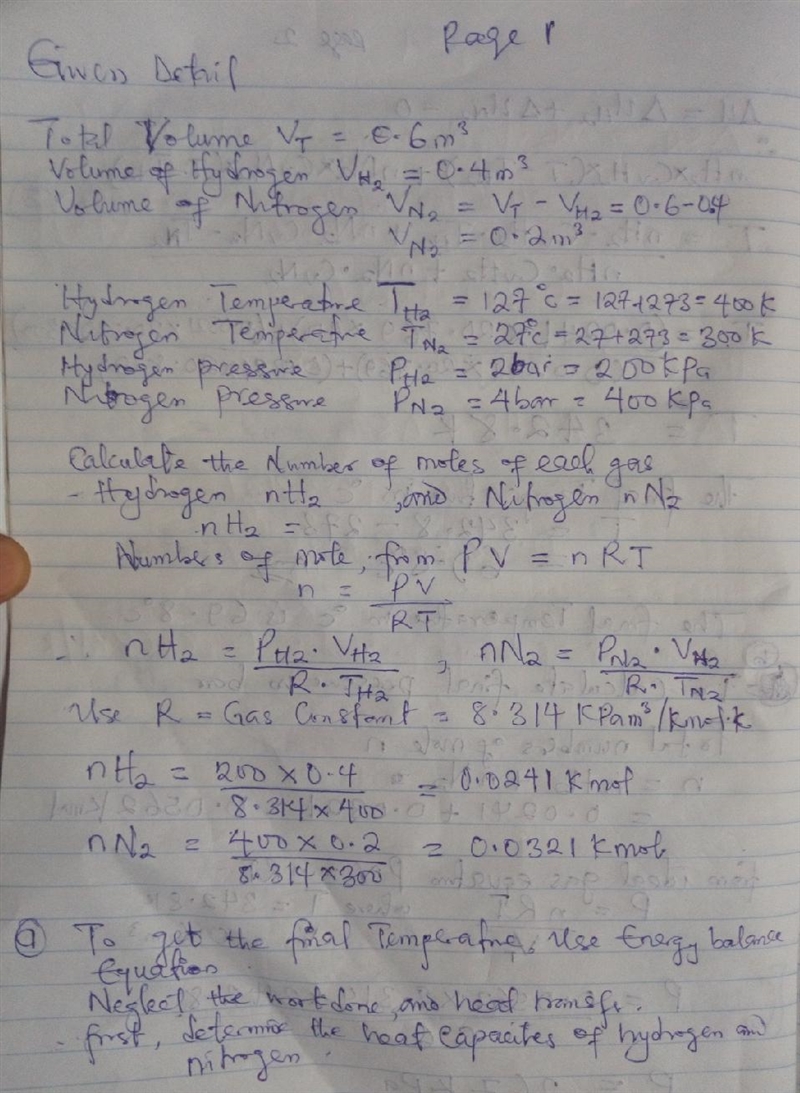 Page 1
Given Detail
Total Volume V_T = 0.6m³
Volume of Hydrogen V_H2 = 0.4m³
Volume of Nitrogen V_N2 = V_T - V_H2 = 0.6-0.4
V_N2 = 0.2m³
Hydrogen Temperature T_H2 = 127°c = 127+273 = 400K
Nitrogen Temperature T_N2 = 27°c = 27+273 = 300K
Hydrogen pressure P_H2 = 2bar = 200KPa
Nitrogen pressure P_N2 = 4bar = 400KPa
Calculate the Number of moles of each gas
- Hydrogen nH2 , and Nitrogen nN2
nH2 =
Numbers of mole, from PV = nRT
n = PV / RT
∴ nH2 = P_H2 · V_H2 / R · T_H2 , nN2 = P_N2 · V_N2 / R · T_N2
Use R = Gas Constant = 8.314 KPam³/Kmol·K
nH2 = 200 × 0.4 / 8.314 × 400 = 0.0241 Kmol
nN2 = 400 × 0.2 / 8.314 × 300 = 0.0321 Kmol
(a) To get the final Temperature, Use Energy balance
Equation.
Neglect the workdone, and head transfr.
- first, determine the heat capacites of hydrogen and
nitrogen.